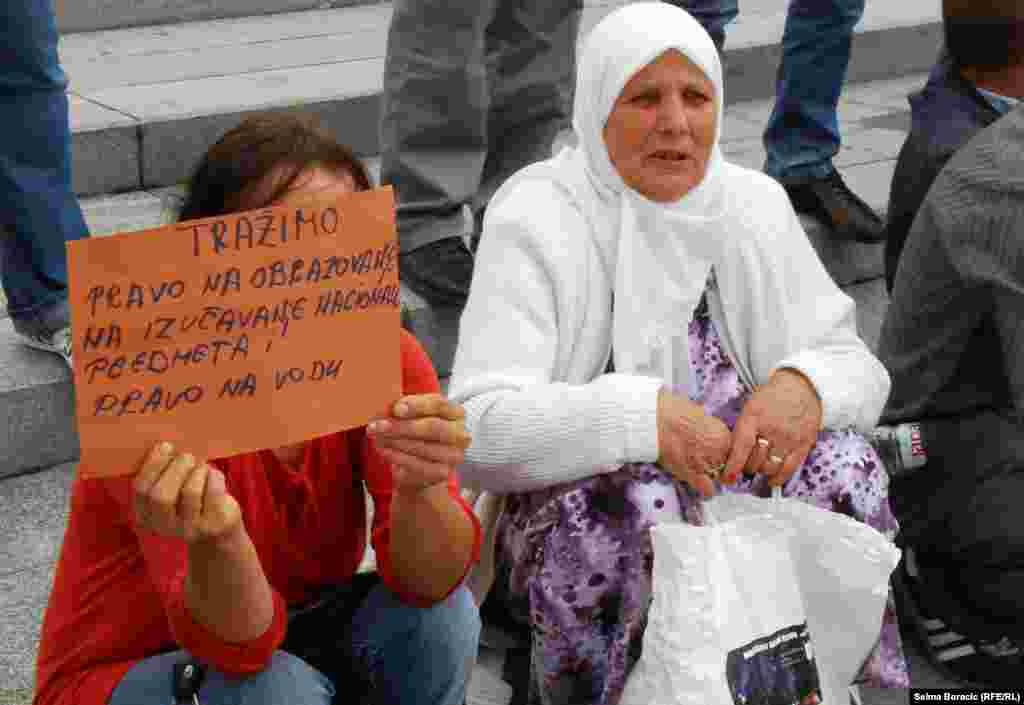 TRAŽIMO
PRAVO NA OBRAZOVANJE
NA IZUČAVANJE NACIONAL
PREDMETA i
PRAVO NA VODU
Selma Boracic (RFE/RL)